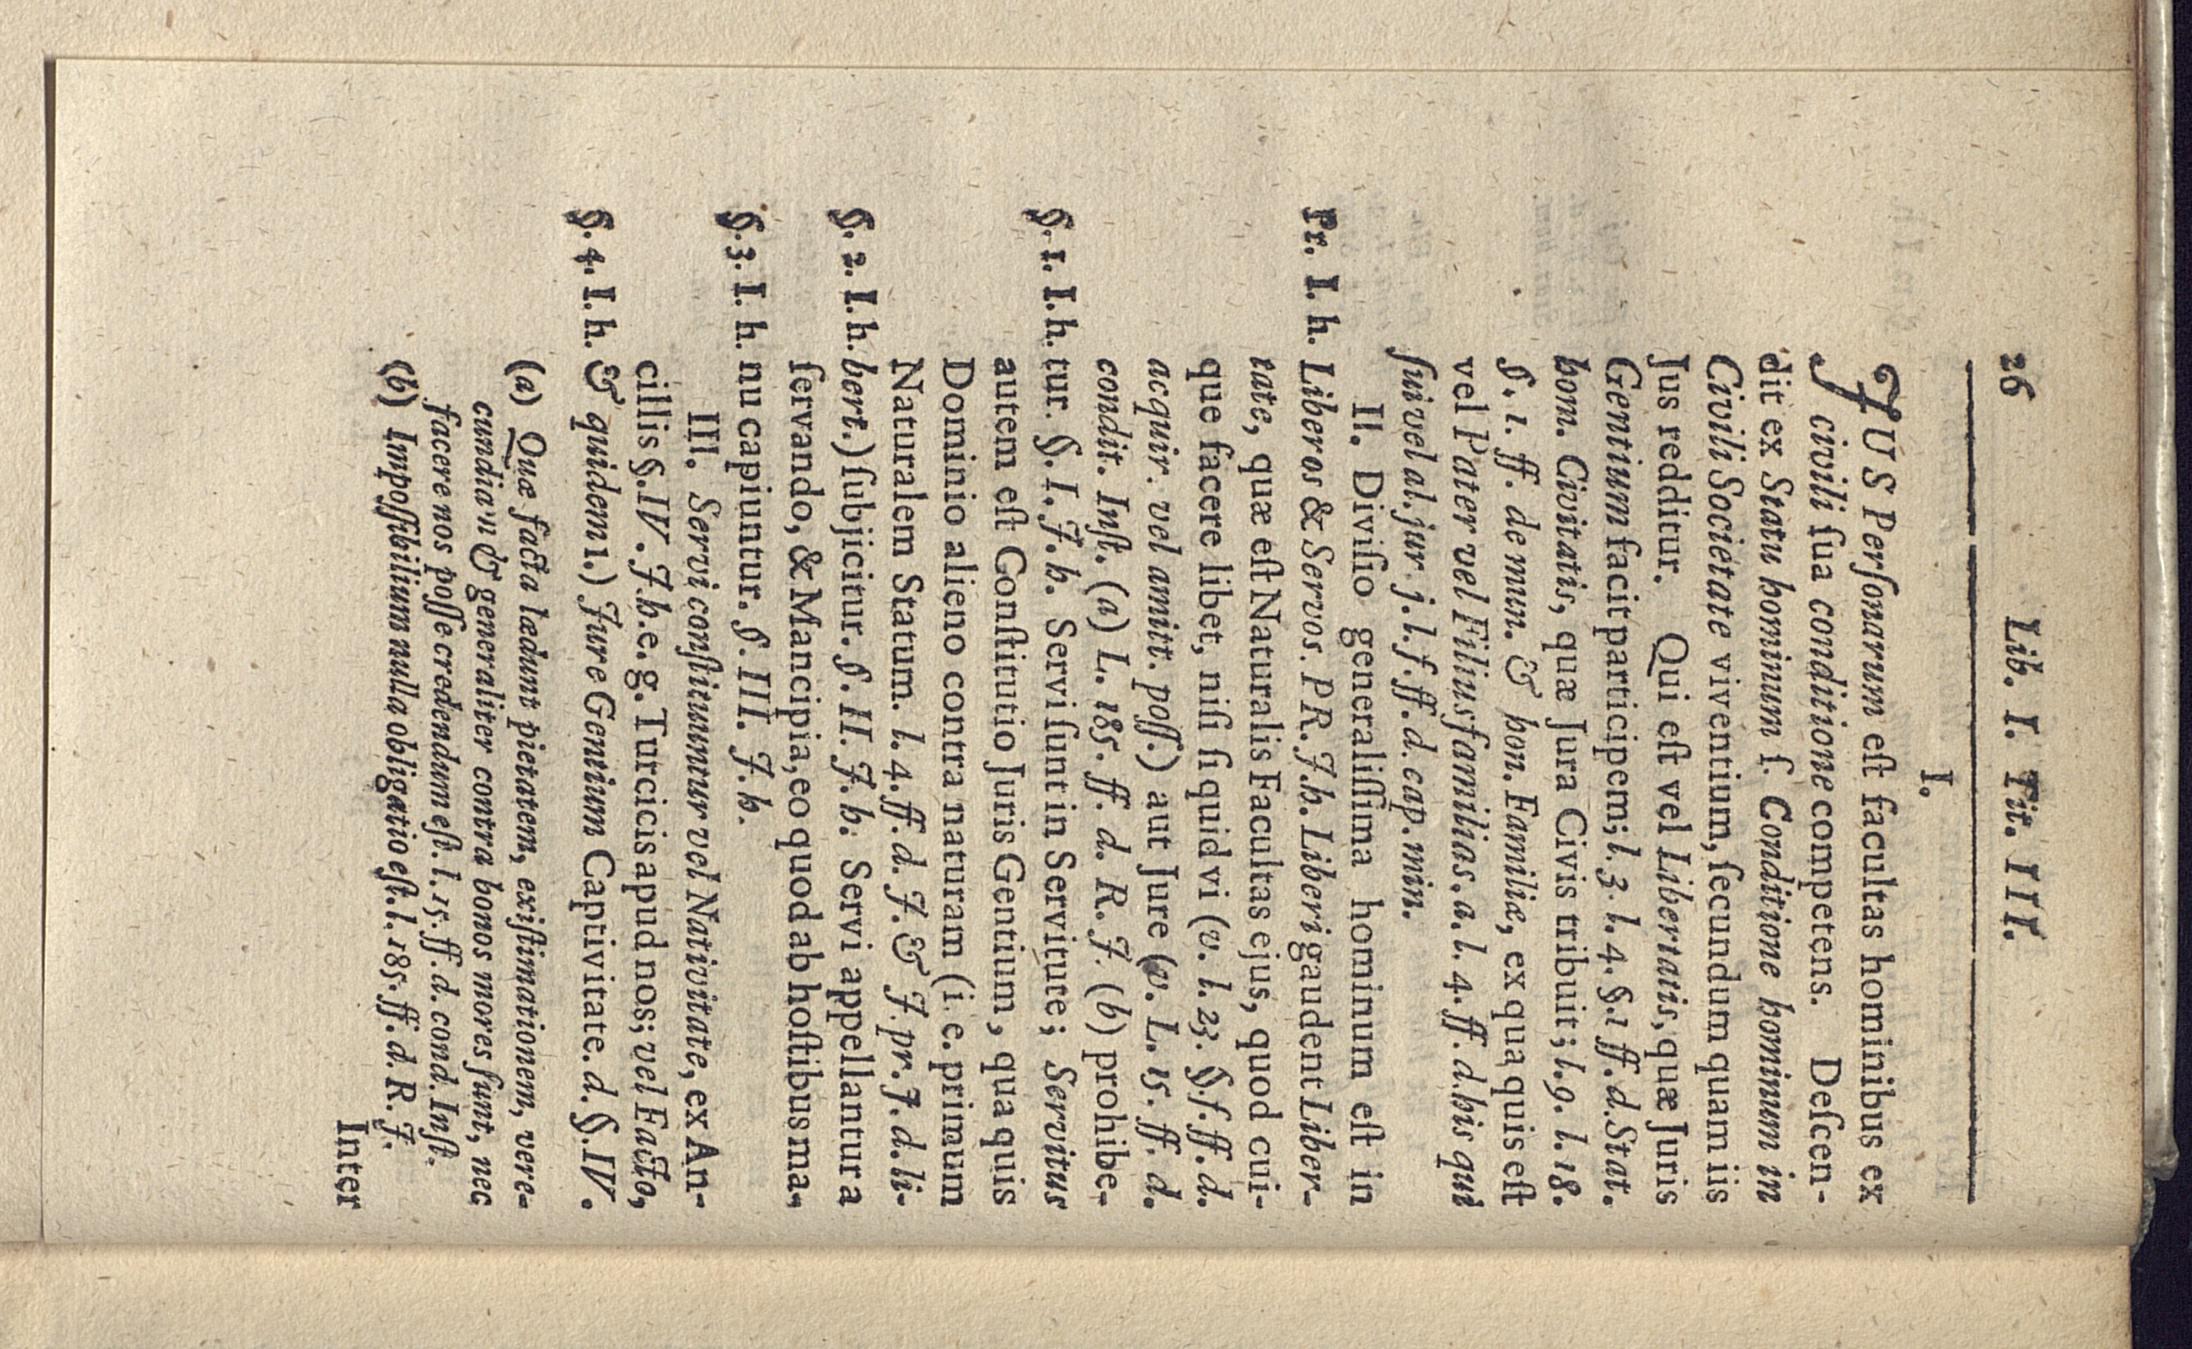 26 Lib. I. Tit. III.
I.
JUS Perſonarum eſt facultas hominibus ex
civili ſua conditione competens. Deſcen-
dit ex Statu hominum ſ. Conditione hominum in
Civili Societate viventium, ſecundum quam iis
Jus redditur. Qui eſt vel Libertatis, quæ Juris
Gentium facit participem; l. 3. l. 4. §. 1 ff. d. Stat.
hom. Civitatis, quæ Jura Civis tribuit; l. 9. l. 18.
§. 1. ff. de mun. & hon. Familiæ, ex qua quis eſt
vel Pater vel Filiusfamilias. a. l. 4. ff. d. his qui
ſui vel al. jur. j. l. f. ff. d. cap. min.
II. Diviſio generaliſſima hominum eſt in
Pr. I. h. Liberos & Servos. PR. J. h. Liberi gaudent Liber-
tate, quæ eſt Naturalis Facultas ejus, quod cui-
que facere libet, niſi ſi quid vi (v. l. 23. §. f. ff. d.
acquir. vel amitt. poſſ.) aut Jure (v. L. 15. ff. d.
condit. Inſt. (a) L. 185. ff. d. R. J. (b) prohibe-
§. 1. I. h. tur. §. I. J. h. Servi ſunt in Servitute; Servitus
autem eſt Conſtitutio Juris Gentium, qua quis
Dominio alieno contra naturam (i. e. primum
Naturalem Statum. l. 4. ff. d. J. & J. pr. J. d. li-
§. 2. I. h. bert.) ſubjicitur. §. II. J. h. Servi appellantur a
ſervando, & Mancipia, eo quod ab hoſtibus ma-
§. 3. I. h. nu capiuntur. §. III. J. h.
III. Servi conſtituuntur vel Nativitate, ex An-
cillis §. IV. J. h. e. g. Turcicis apud nos; vel Facto,
§. 4. I. h. & quidem 1.) Jure Gentium Captivitate. d. §. IV.
(a) Quæ facta lædunt pietatem, exiſtimationem, vere-
cundiam & generaliter contra bonos mores ſunt, nec
facere nos poſſe credendum eſt. l. 15. ff. d. cond. Inſt.
(b) Impoſſibilium nulla obligatio eſt. l. 185. ff. d. R. J.
Inter